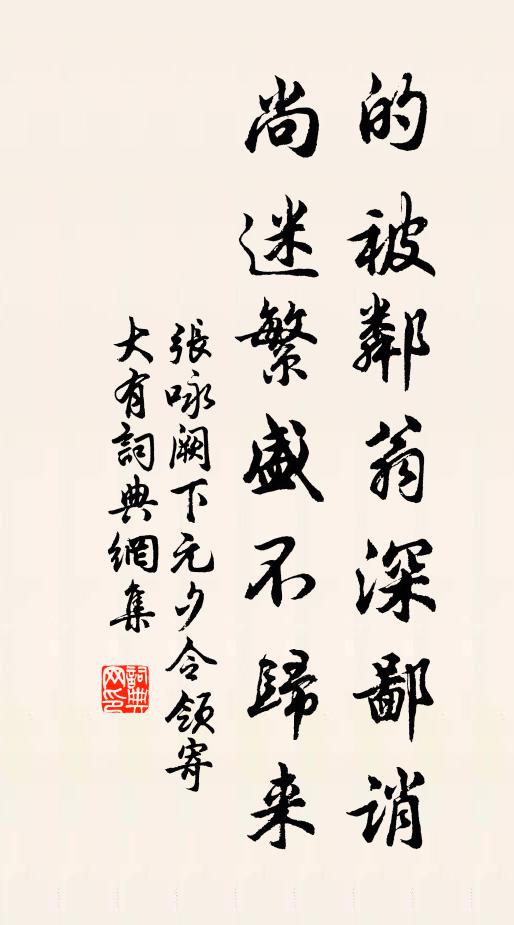 的被鄰翁深鄙誚
尚迷繁盛不歸来
張咏闕下元夕令領寄
大有詞典網集
詞典
网印